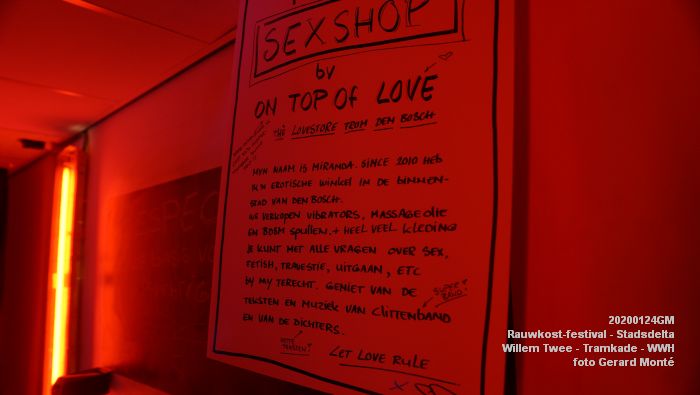 SEXSHOP
by
ON TOP OF LOVE
THE LOVESTORE FROM DEN BOSCH
MYN NAAM IS MIRANDA. SINCE 2010 HEB
IK 'N EROTISCHE WINKEL IN DE BINNEN-
STAD VAN DEN BOSCH.
WE VERKOPEN VIBRATORS, MASSAGE OLIE
EN BDSM SPULLEN. + HEEL VEEL KLEDING
JE KUNT MET ALLE VRAGEN OVER SEX,
FETISH, TRAVESTIE, UITGAAN, ETC
BY MY TERECHT. GENIET VAN DE
SUPER BAND!
TEKSTEN EN MUZIEK VAN CLITTENBAND
EN VAN DE DICHTERS..
LET LOVE RULE
SPEC
20200124GM
Rauwkost-festival - Stadsdelta
Willem Twee - Tramkade - WWH
foto Gerard Monté